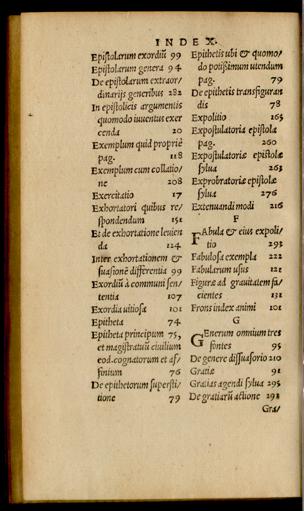 INDEX.
Epistolarum exordiũ 99
Epistolarum genera 94
De epistolarum extraor/
dinarijs generibus 282
In epistolicis argumentis
quomodo iuuentus exer
cenda 20
Exemplum quid propriè
pag. 118
Exemplum cum collatio/
ne 208
Exercitatio 17
Exhortatori quibus re/
spondendum 151
Et de exhortatione leuien
da 124
Inter exhortationem &
suasionẽ differentia 99
Exordiũ à communi sen/
tentia 107
Exordia uitiosa 101
Epitheta 74
Epitheta principum 75,
et magistratuũ ciuilium
eod. cognatorum et af/
finium 76
De epithetorum supersti/
tione 79
Epithetis ubi & quomo/
do potißimum utendum
pag. 79
De epithetis transfiguran
dis 78
Expolitio 165
Expostulatoria epistola
pag. 260
Expostulatoriæ epistolæ
sylua 263
Exprobratoriæ epistolæ
sylua 276
Extenuandi modi 216
F
FAbula & eius expoli/
tio 293
Fabulosa exempla 222
Fabularum usus 121
Figuræ ad grauitatem fa/
cientes 131
Frons index animi 101
G
GEnerum omnium tres
fontes 95
De genere dissuasorio 210
Gratiæ 91
Gratias agendi sylua 295
De gratiarũ actione 291
Gra/